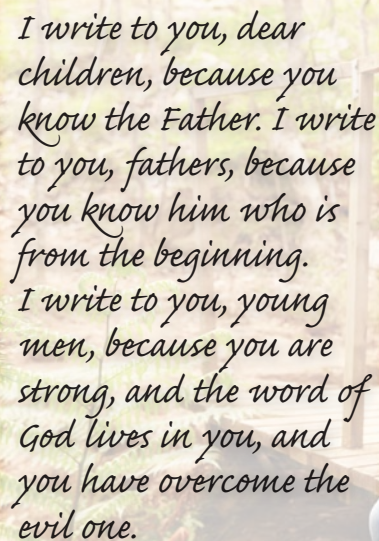 I write to you, dear
children, because you
know the Father. I write
to you, fathers, because
you know him who is
from the beginning.
I write to you, young
men, because you are
strong, and the word of
God lives in you, and
you have overcome the
evil one.